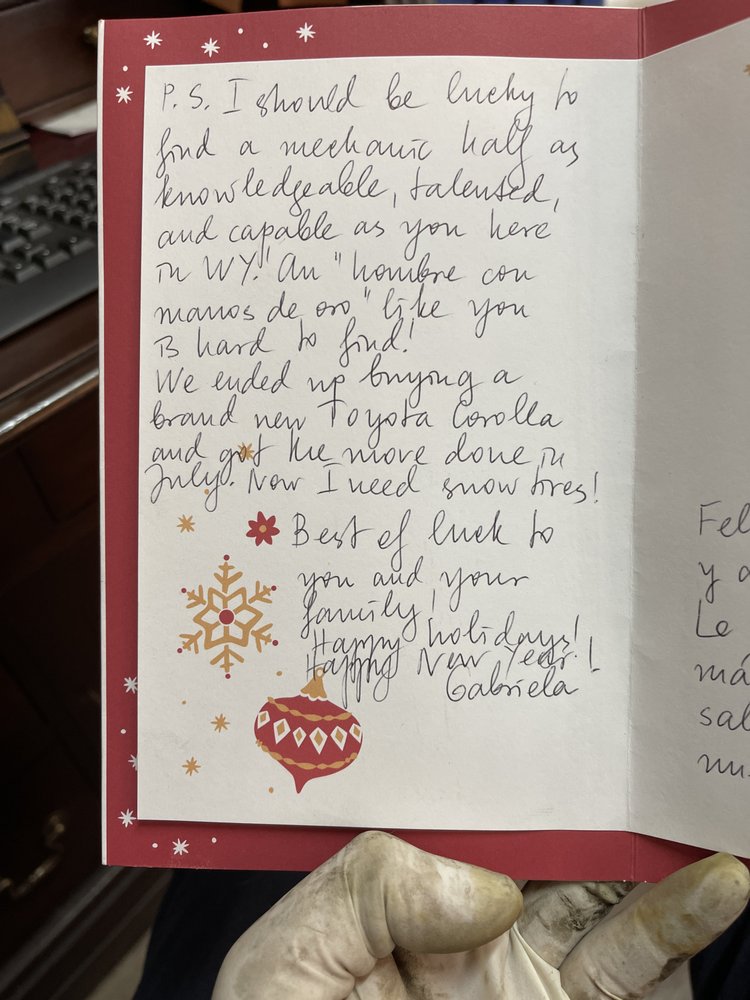 P. S. I should be lucky to
find a mechanic half as
knowledgeable, talented,
and capable as you here
in WY! An "hombre con
manos de oro" like you
is hard to find!
We ended up buying a
brand new Toyota Corolla
and got the move done in
July. Now I need snow tires!
Best of luck to
you and your
family!
Happy holidays!
Happy New Year!
Gabriela
Fel
y a
Le
má
sal